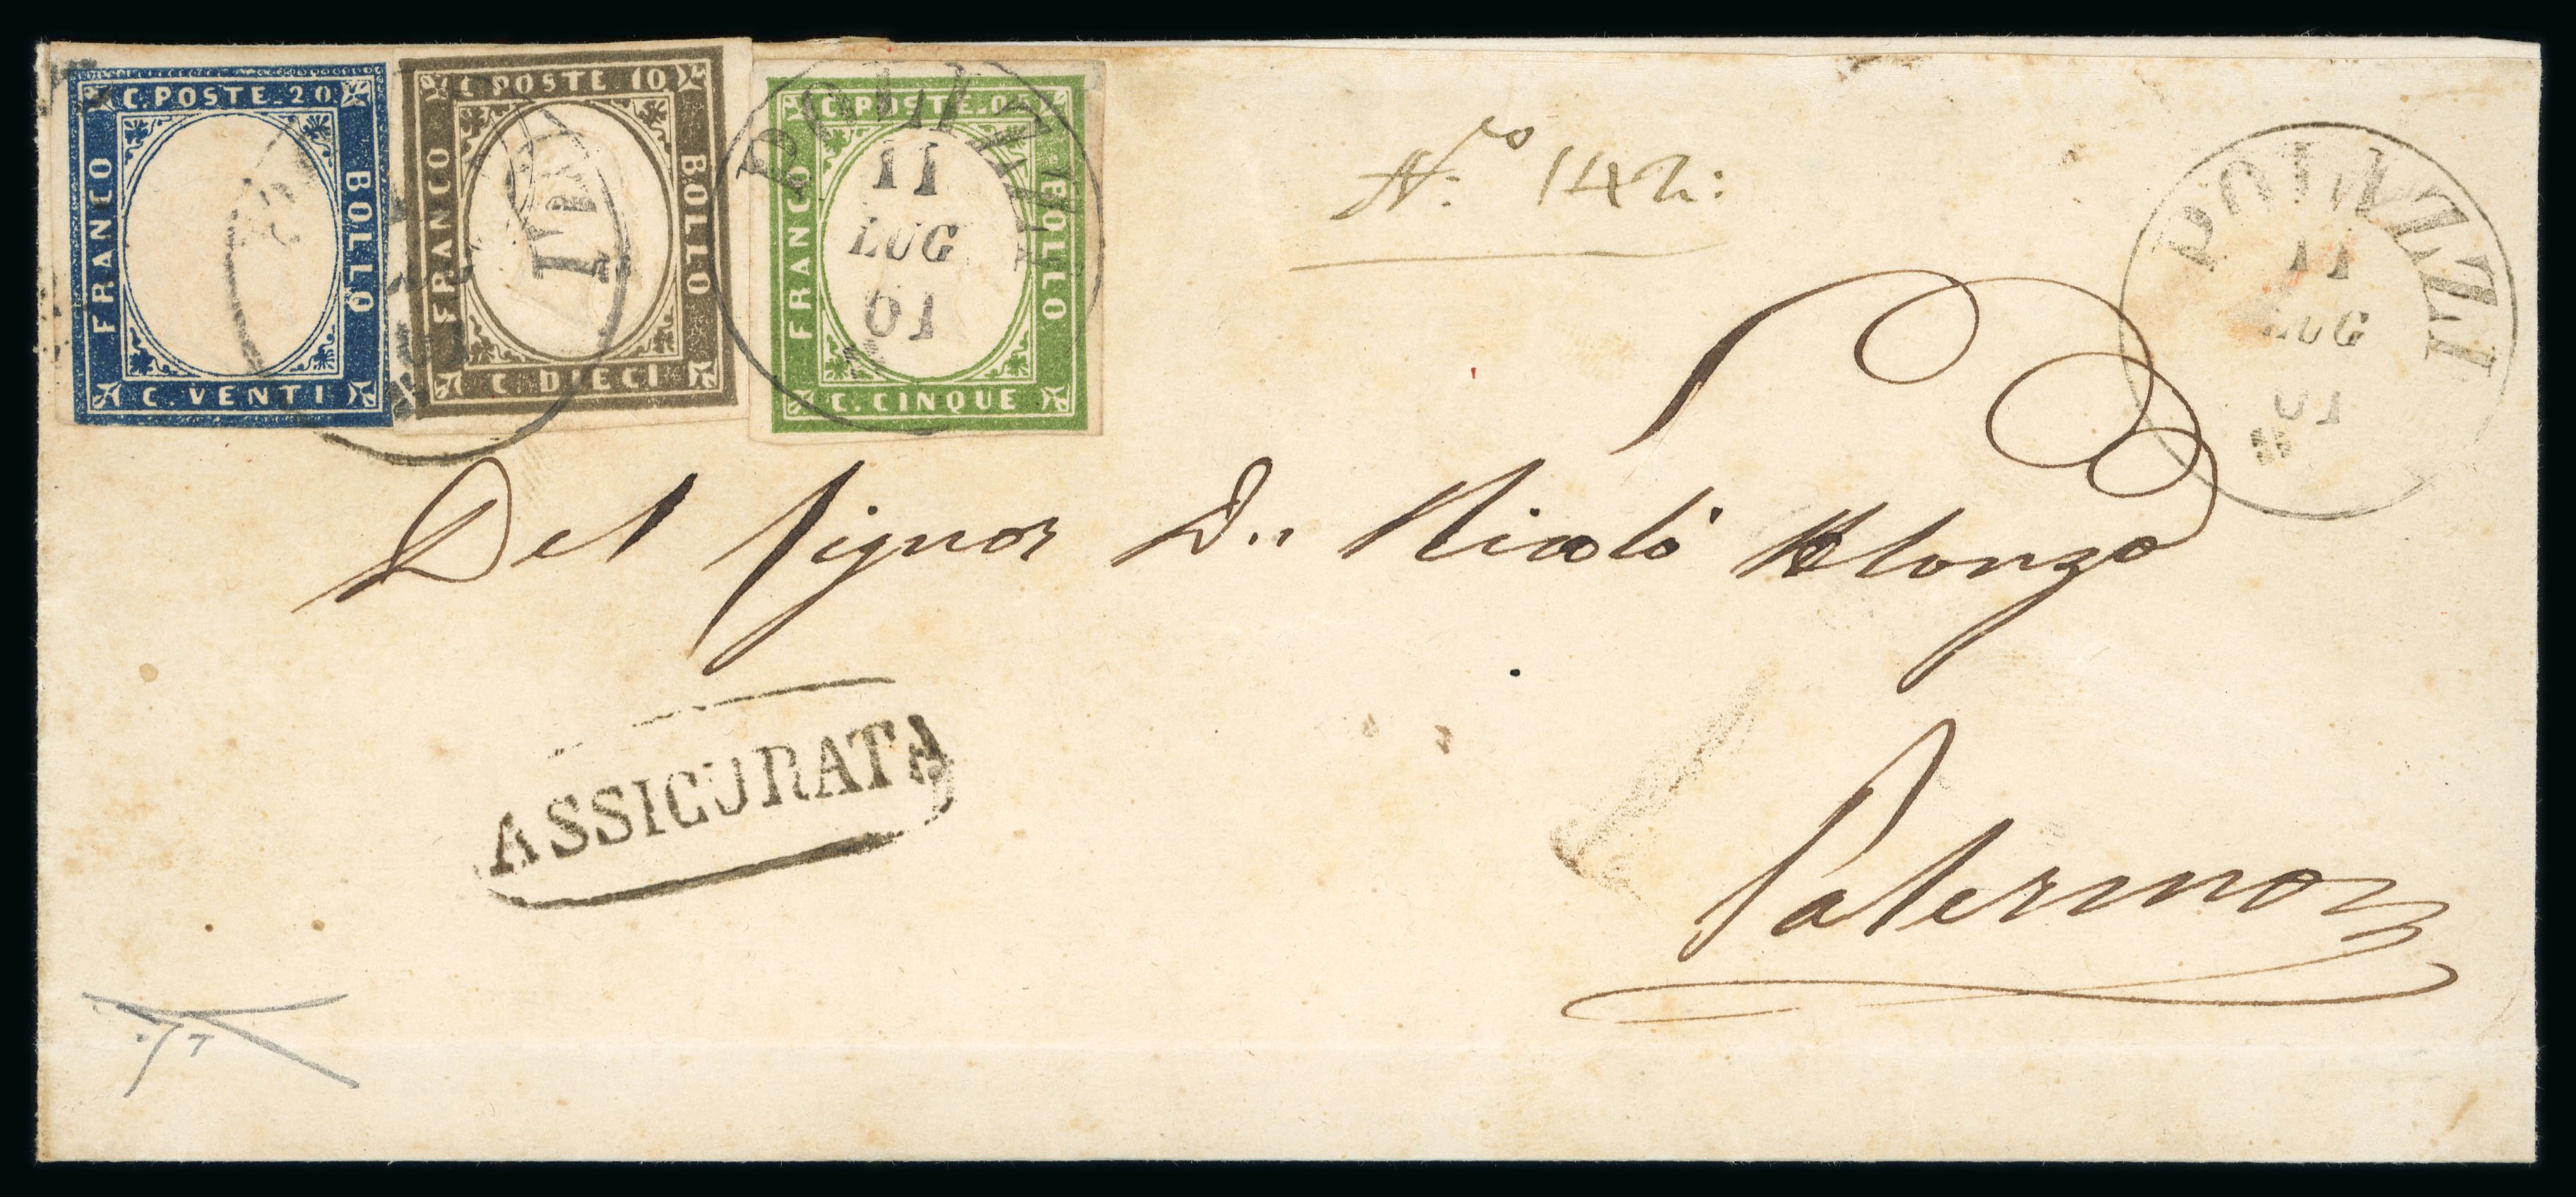 C. POSTE. 20
FRANCO
BOLLO
C. VENTI
C. POSTE 10
FRANCO
BOLLO
C. DIECI
C. POSTE. 05
FRANCO
BOLLO
C. CINQUE
POLIZZI
11
LUG
61
POLIZZI
11
LUG
61
N.ro 142:
Del Signor D.n Nicolò Alonzo
ASSICURATA
Palermo